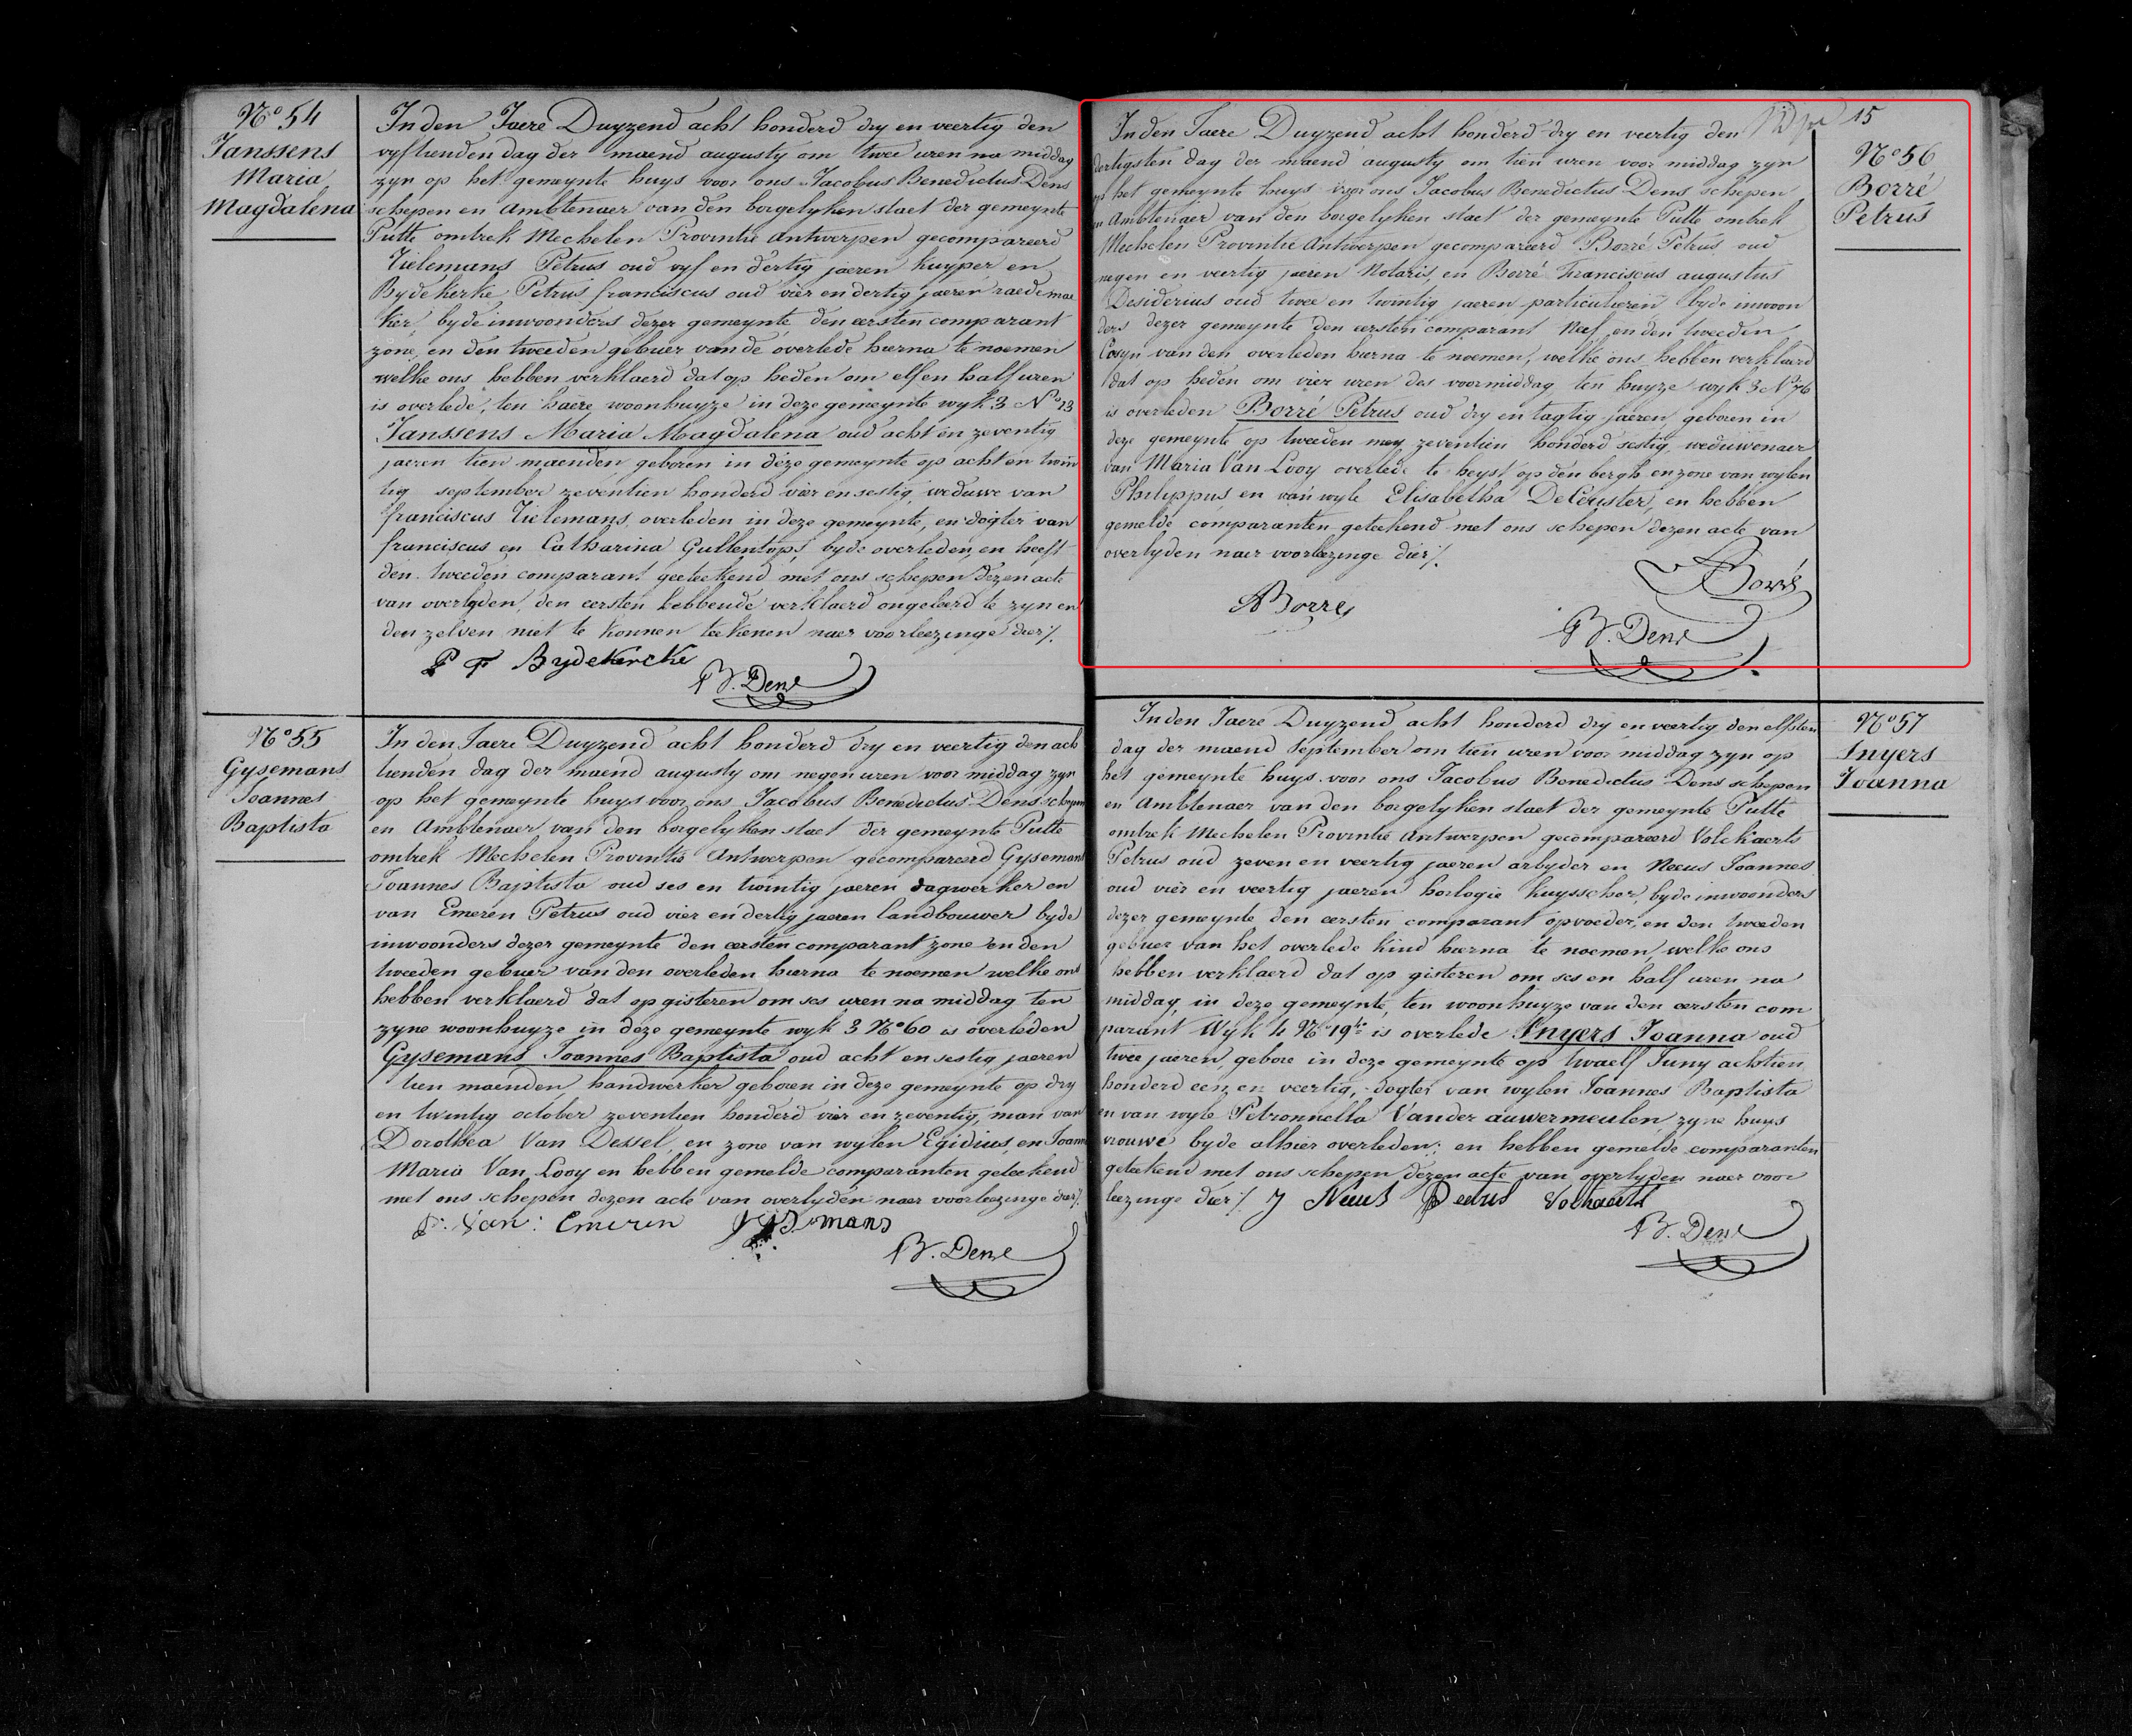 Nº 54
Janssens
Maria
Magdalena
In den Jaere Duyzend acht honderd dry en veertig den
vyftienden dag der maend augusty om twee uren na middag
zyn op het gemeynte huys voor ons Jacobus Benedictus Dens
schepen en Ambtenaer van den borgelyken staet der gemeynte
Putte omtrek Mechelen Provintie Antwerpen gecompareerd
Tielemans Petrus oud vyf en dertig jaeren kuyper en
Bydekerke Petrus franciscus oud vier en dertig jaeren raedemae
ker, byde inwoonders dezer gemeynte, den eersten comparant
zone, en den tweeden gebuer van de overlede hierna te noemen
welke ons hebben verklaerd dat op heden om elf en half uren
is overlede, ten haere woonhuyze in deze gemeynte wyk 3 Nº 23
Janssens Maria Magdalena oud acht en zeventig
jaeren tien maenden geboren in deze gemeynte op acht en twin
tig september zeventien honderd vier en sestig, weduwe van
franciscus Tielemans, overleden in deze gemeynte, en dogter van
franciscus en Catharina Gullentops, byde overleden, en heeft
den tweeden comparant geteekend met ons schepen dezen acte
van overlyden, den eersten hebbende verklaerd ongeleerd te zyn en
den zelven niet te konnen teekenen naer voorleezinge dier/.
P F Bydekercke
B. Dens
Nº 55
Gysemans
Joannes
Baptista
In den Jaere Duyzend acht honderd dry en veertig den ach
tienden dag der maend augusty om negen uren voor middag zyn
op het gemeynte huys voor ons Jacobus Benedictus Dens schepen
en Ambtenaer van den borgelyken staet der gemeynte Putte
omtrek Mechelen Provintie Antwerpen gecompareerd Gysemans
Joannes Baptista oud ses en twintig jaeren dagwerker en
van Emeren Petrus oud vier en dertig jaeren landbouwer byde
inwoonders dezer gemeynte den eersten comparant zone en den
tweeden gebuer van den overleden hierna te noemen welke ons
hebben verklaerd dat op gisteren om ses uren na middag ten
zyne woonhuyze in deze gemeynte wyk 3 Nº 60 is overleden
Gysemans Joannes Baptista oud acht en sestig jaeren
tien maenden handwerker geboren in deze gemeynte op dry
en twintig october zeventien honderd vier en zeventig, man van
Dorothea Van Dessel, en zone van wylen Egidius, en Joanna
Maria Van Looy en hebben gemelde comparanten geteekend
met ons schepen dezen acte van overlyden naer voorleezinge dier/.
P. Van: Emeren
B. Dens
15
In den Jaere Duyzend acht honderd dry en veertig den
dertigsten dag der maend augusty om tien uren voor middag zyn
op het gemeynte huys voor ons Jacobus Benedictus Dens schepen
en Ambtenaer van den borgelyken staet der gemeynte Putte omtrek
Mechelen Provintie Antwerpen gecompareerd Borré Petrus oud
negen en veertig jaeren Notaris, en Borré Franciscus augustus
Desiderius oud twee en twintig jaeren particulieren byde inwoon
ders dezer gemeynte den eersten comparant Neef, en den tweeden
Cosyn van den overleden hierna te noemen, welke ons hebben verklaerd
dat op heden om vier uren des voormiddag ten huyze wyk 3 Nº 76
is overleden Borré Petrus oud dry en tagtig jaeren, geboren in
deze gemeynte op tweeden mey zeventien honderd sestig, weduwenaer
van Maria Van Looy overlede te heyst op den bergh en zone van wylen
Philippus, en van wyle Elisabetha De Ceuster, en hebben
gemelde comparanten geteekend met ons schepen dezen acte van
overlyden naer voorleezinge dier/.
Borré
ABorre
B. Dens
Nº 56
Borré
Petrus
In den Jaere Duyzend acht honderd dry en veertig den elfsten
dag der maend September om tien uren voor middag zyn op
het gemeynte huys voor ons Jacobus Benedictus Dens schepen
en Ambtenaer van den borgelyken staet der gemeynte Putte
omtrek Mechelen Provintie Antwerpen gecompareerd Volckaerts
Petrus oud zeven en veertig jaeren arbyder en Neeus Joannes
oud vier en veertig jaeren horlogie kuysscher, byde inwoonders
dezer gemeynte den eersten comparant opvoeder, en den tweeden
gebuer van het overlede kind hierna te noemen, welke ons
hebben verklaerd dat op gisteren om ses en half uren na
middag, in deze gemeynte, ten woonhuyze van den eersten com
parant Wyk 4 Nº 19 is overlede Inyers Joanna oud
twee jaeren, gebore in deze gemeynte op twaelf Juny achtien
honderd een en veertig, dogter van wylen Joannes Baptista
en van wyle Petronnella Van der auwermeulen zyne huys
vrouwe byde alhier overleden; en hebben gemelde comparanten
geteekend met ons schepen dezen acte van overlyden naer voor
leezinge dier/. J Neeus Peetrus Volkaerts
B. Dens
Nº 57
Inyers
Joanna